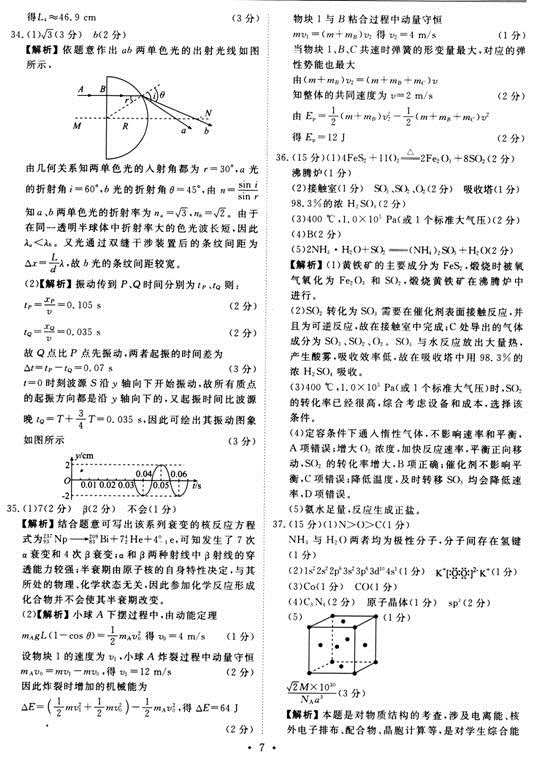 得L₁≈46.9 cm (3分)
34.(1)√3(3分) b(2分)
【解析】依题意作出 ab 两单色光的出射光线如图
所示,
A B r i θ
M R N
a b
由几何关系知两单色光的入射角都为 r=30°,a 光
的折射角 i=60°,b 光的折射角 θ=45°,由 n=sin i/sin r
知 a、b 两单色光的折射率为 nₐ=√3,n_b=√2。由于
在同一透明半球体中折射率大的色光波长短,因此
λₐ<λ_b。又光通过双缝干涉装置后的条纹间距为
Δx=L/d λ,故 b 光的条纹间距较宽。
(2)【解析】振动传到 P、Q 时间分别为 t_P、t_Q 则:
t_P=x_P/v=0.105 s (2分)
t_Q=x_Q/v=0.035 s (2分)
故 Q 点比 P 点先振动,两者起振的时间差为
Δt=t_P-t_Q=0.07 s (3分)
t=0 时刻波源 S 沿 y 轴向下开始振动,故所有质点
的起振方向都是沿 y 轴向下的,又起振时间比波源
晚 t_Q=T+3/4 T=0.035 s,因此可绘出其振动图象
如图所示 (3分)
y/cm
2 0.04 0.06
0 0.01 0.02 0.03 0.05 t/s
-2
35.(1)7(2分) β(2分) 不会(1分)
【解析】结合题意可写出该系列衰变的核反应方程
式为²³⁷₉₃Np→²⁰⁹₈₃Bi+7⁴₂He+4⁰₋₁e,可知发生了 7 次
α 衰变和 4 次 β 衰变;α 和 β 两种射线中 β 射线的穿
透能力较强;半衰期由原子核的自身特性决定,与其
所处的物理、化学状态无关,因此参加化学反应形成
化合物并不会使其半衰期改变。
(2)【解析】小球 A 下摆过程中,由动能定理
m_AgL(1-cos θ)=1/2 m_Av₀² 得 v₀=4 m/s (1分)
设物块 1 的速度为 v₁,小球 A 炸裂过程中动量守恒
m_Av₀=mv₁-mv₀,得 v₁=12 m/s (2分)
因此炸裂时增加的机械能为
ΔE=(1/2 mv₁²+1/2 mv₀²)-1/2 m_Av₀²,得 ΔE=64 J
(2分)
物块 1 与 B 粘合过程中动量守恒
mv₁=(m+m_B)v₂ 得 v₂=4 m/s (1分)
当物块 1、B、C 共速时弹簧的形变量最大,对应的弹
性势能也最大
由(m+m_B)v₂=(m+m_B+m_C)v
知整体的共同速度为 v=2 m/s (2分)
由 E_p=1/2(m+m_B)v₂²-1/2(m+m_B+m_C)v²
得 E_p=12 J (2分)
36.(15分)(1)4FeS₂+11O₂=△=2Fe₂O₃+8SO₂(2分)
沸腾炉(1分)
(2)接触室(1分) SO₃、SO₂、O₂(2分) 吸收塔(1分)
98.3%的浓 H₂SO₄(2分)
(3)400 ℃,1.0×10⁵ Pa(或 1 个标准大气压)(2分)
(4)B(2分)
(5)2NH₃·H₂O+SO₂══(NH₄)₂SO₃+H₂O(2分)
【解析】(1)黄铁矿的主要成分为 FeS₂,煅烧时被氧
气氧化为 Fe₂O₃ 和 SO₂,煅烧黄铁矿在沸腾炉中
进行。
(2)SO₂ 转化为 SO₃ 需要在催化剂表面接触反应,并
且为可逆反应,故在接触室中完成;C 处导出的气体
成分为 SO₃、SO₂、O₂。SO₃ 与水反应放出大量热,
产生酸雾,吸收效率低,故在吸收塔中用 98.3%的
浓 H₂SO₄ 吸收。
(3)400 ℃,1.0×10⁵ Pa(或 1 个标准大气压)时,SO₂
的转化率已经很高,综合考虑设备和成本,选择该
条件。
(4)定容条件下通入惰性气体,不影响速率和平衡,
A 项错误;增大 O₂ 浓度,加快反应速率,平衡正向移
动,SO₂ 的转化率增大,B 项正确;催化剂不影响平
衡,C 项错误;降低温度,及时转移 SO₃ 均会降低速
率,D 项错误。
(5)氨水足量,反应生成正盐。
37.(15分)(1)N>O>C(1分)
NH₃ 与 H₂O 两者均为极性分子,分子间存在氢键
(1分)
(2)1s²2s²2p⁶3s²3p⁶3d¹⁰4s¹(1分) K⁺[:Ö:Ö:]²⁻K⁺(1分)
(3)Co(1分) CO(1分)
(4)C₃N₄(2分) 原子晶体(1分) sp³(2分)
(5) (1分)
√2M×10³⁰/N_Aa³(3分)
【解析】本题是对物质结构的考查,涉及电离能、核
外电子排布、配合物、晶胞计算等,是对学生综合能
· 7 ·